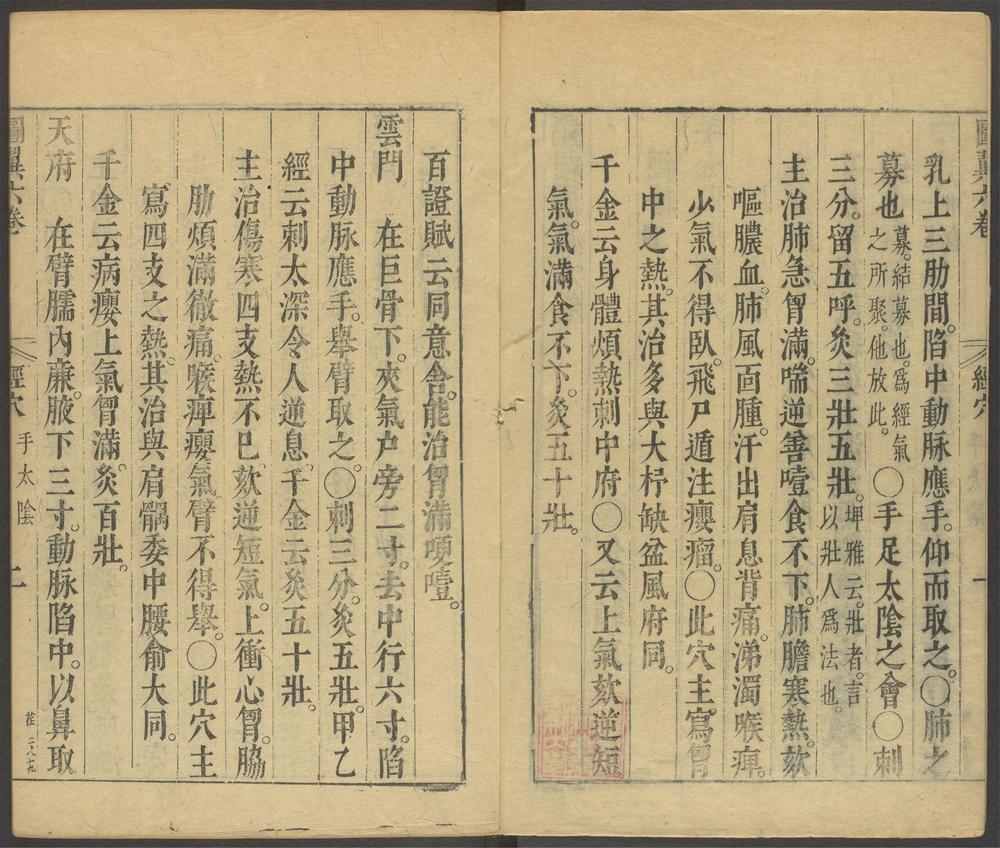 圖翼六卷
經穴
一
乳上三肋間。陷中動脉應手。仰而取之。○肺之
募也募。結募也。爲經氣之所聚。他放此。○手足太陰之會○刺
三分。留五呼。灸三壯五壯。埤雅云。壯者。言以壯人爲法也。
主治肺急胷滿。喘逆善噎食不下。肺膽寒熱。欬
嘔膿血。肺風面腫。汗出肩息背痛。涕濁喉痺。
少氣不得臥。飛尸遁注癭瘤。○此穴主寫胷
中之熱。其治多與大杼缺盆風府同。
千金云身體煩熱刺中府○又云上氣欬逆短
氣。氣滿食不下。灸五十壯。
百證賦云同意舍。能治胷滿哽噎。
雲門　在巨骨下。夾氣户旁二寸。去中行六寸。陷
中動脉應手。舉臂取之。○刺三分。灸五壯。甲乙
經云刺太深令人逆息。千金云灸五十壯。
主治傷寒四支熱不已。欬逆短氣。上衝心胷。脇
肋煩滿徹痛。喉痺癭氣。臂不得舉。○此穴主
寫四支之熱。其治與肩髃委中腰俞大同。
千金云病癭上氣胷滿。灸百壯。
天府　在臂臑內廉。腋下三寸。動脉陷中。以鼻取
圖翼六卷
經穴
手太陰
二